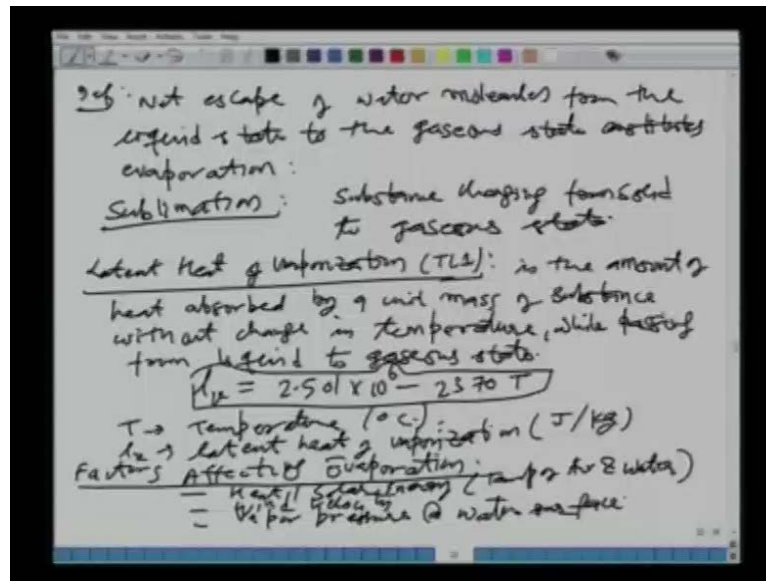 Def: Net escape of water molecules from the
liquid state to the gaseous state constitutes
evaporation:
Sublimation: Substance changing from solid
to gaseous state.
Latent Heat of Vaporization (TLS): is the amount of
heat absorbed by a unit mass of substance
without change in temperature, while passing
from liquid to gaseous state.
= 2.501 x 10⁶ - 2370 T
T → Temperature (°C)
→ latent heat of vaporization (J/kg)
Factors Affecting Evaporation:
- Heat / Solar Energy (Temp of Air & water)
- Wind Velocity
- Vapor pressure @ water surface